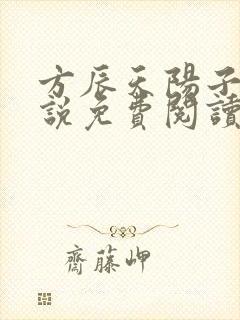 方辰天陽子
説免費閱讀
齋藤岬